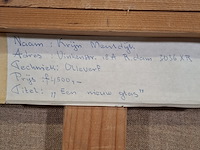 Naam: Krijn Meusdijk
Adres: Vinkenstr. 18A R'dam 3036 XR
Techniek: Olieverf
Prijs: f 4,500,-
Titel: „Een nieuw glas"